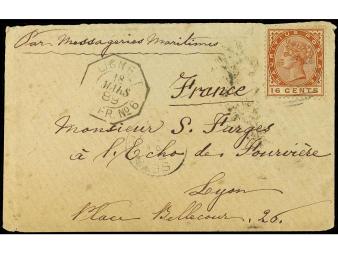 Par Messageries Maritimes
LIGNE
18
MARS
89
FR. Nº 6
16 CENTS
France
Monsieur S. Farges
à l'Echo de Fourvière
Lyon
Place Bellecour, 26.